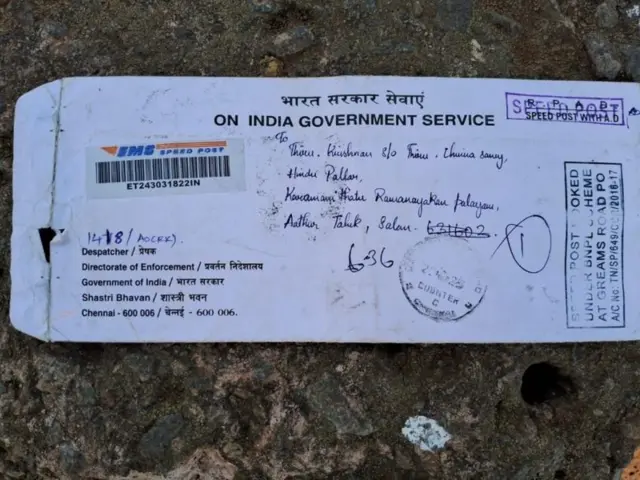 भारत सरकार सेवाएं
ON INDIA GOVERNMENT SERVICE
SPEED POST
SPEED POST WITH A.D
EMS SPEED POST
ET243031822IN
To
Thiru. Krishnan S/o Thiru. Chinna samy,
Hindu Pallar,
Ramanayakan palayam,
Aathur Taluk, Salem. 631602.
636
1
1418/
Despatcher / प्रेषक
Directorate of Enforcement / प्रवर्तन निदेशालय
Government of India / भारत सरकार
Shastri Bhavan / शास्त्री भवन
Chennai - 600 006 / चेन्नई - 600 006.
COUNTER
C
CHENNAI
SPEED POST BOOKED
UNDER BNPL SCHEME
AT GREAMS ROAD PO
A/C No: TN/SP/649/CC/2016-17